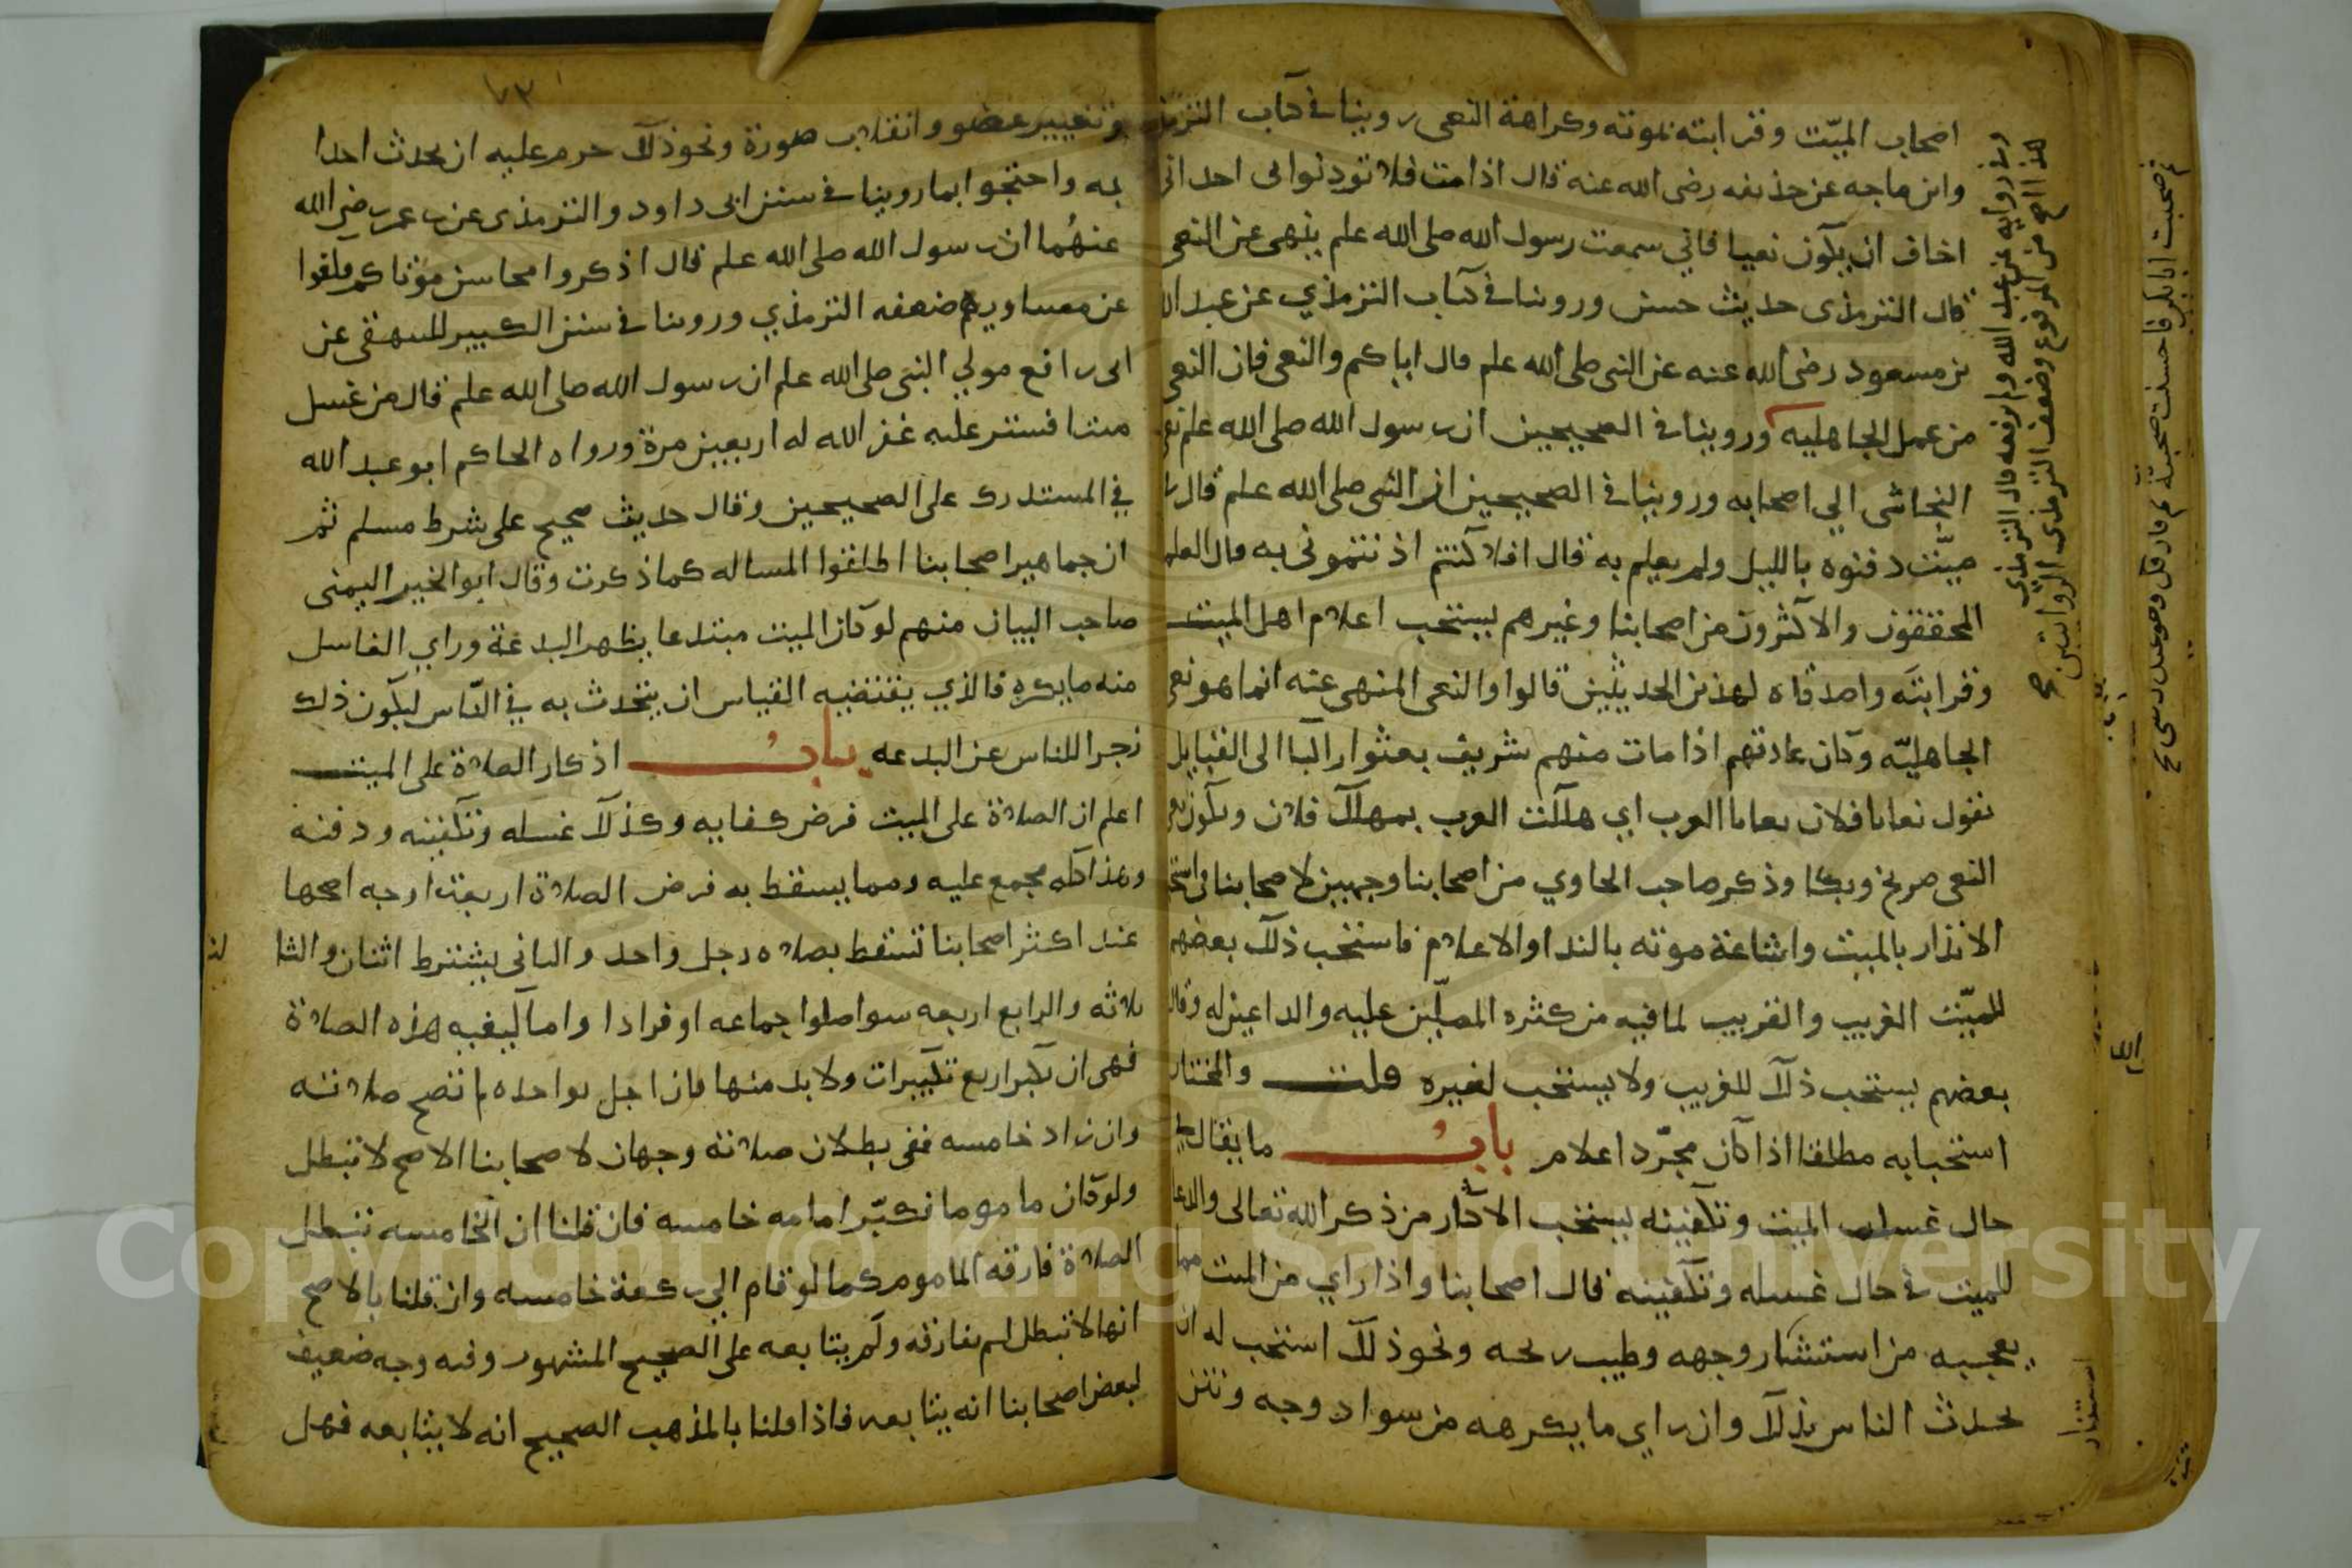 اصحاب الميّت وقرابته بموته وكراهة النعى روينا فى كتاب الترمذ
وابن ماجه عن حذيفه رضى الله عنه قال اذا مت فلا تؤذنوا بى احدا انى
اخاف ان يكون نعيا فاني سمعت رسول الله صلى الله علم ينهى عن النعى
قال الترمذى حديث حسن وروينا فى كتاب الترمذي عن عبد الله
بن مسعود رضى الله عنه عن النبى صلى الله علم قال اياكم والنعى فان النعى
من عمل الجاهليه وروينا فى الصحيحين ان رسول الله صلى الله علم نعى
النجاشى الي اصحابه وروينا فى الصحيحين ان النبى صلى الله علم قال
ميّت دفنوه بالليل ولم يعلم به قال افلا كنتم اذنتمونى به قال العلما
المحققون والاكثرون من اصحابنا وغيرهم يستحب اعلام اهل الميت
وقرابته واصدقاه لهذين الحديثين قالوا والنعى المنهى عنه انما هو نعى
الجاهليّه وكان عادتهم اذا مات منهم شريف بعثوا راكبا الى القبايل
يقول نعايا فلان يعايا العرب اي هلكت العرب بمهلك فلان ويكون مع
النعى صريخ وبكا وذكر صاحب الحاوي من اصحابنا وجهين لاصحابنا فى استحباب
الانذار بالميت واشاعة موته بالندا والاعلام فاستحب ذلك بعضهم
للميّت الغريب والقريب لما فيه من كثره المصلّين عليه والداعين له وقال
بعضهم يستحب ذلك للغريب ولا يستحب لغيره قلت والمختار
استحبابه مطلقا اذا كان مجرّد اعلام باب ما يقال فى
حال غسل الميت وتكفينه يستحب الاكثار من ذكر الله تعالى والدعا
للميت فى حال غسله وتكفينه قال اصحابنا واذا راي من الميت مما
يعجبه من استنشار وجهه وطيب ريحه ونحو ذلك استحب له ان
يحدث الناس بذلك وان راي ما يكرهه من سواد وجه ونتن
وفى رواية عن عبد الله ولم يرفعه قال الترمذي
هذا اصح من المرفوع وضعف الترمذى الروايتين صح
استنار
وتغيير عضو وانقلاب صورة ونحو ذلك حرم عليه ان يحدث احدا
به واحتجوا بما روينا فى سنن ابى داود والترمذى عن بن عمر رضى الله
عنهُما ان رسول الله صلى الله علم قال اذكروا محاسن موتاكم وكفوا
عن مساويهم ضعفه الترمذي وروينا فى سنن الكبير للبيهقى عن
ابى رافع مولي النبى صلى الله علم ان رسول الله صلى الله علم قال من غسل
ميتا فستر عليه غفر الله له اربعين مرة ورواه الحاكم ابو عبد الله
في المستدرك على الصحيحين وقال حديث صحيح على شرط مسلم ثم
ان جماهير اصحابنا اطلقوا المساله كما ذكرت وقال ابو الخير اليمنى
صاحب البيان منهم لو كان الميت مبتدعا يظهر البدعة وراي الغاسل
منه ما يكره فالذي يقتضيه القياس ان يتحدث به في النّاس ليكون ذلك
زجرا للناس عن البدعه باب اذكار الصلاة على الميت
اعلم ان الصلاة على الميت فرض كفايه وكذلك غسله وتكفينه ودفنه
وهذا كله مجمع عليه ومما يسقط به فرض الصلاة اربعة اوجه اصحها
عند اكثر اصحابنا تسقط بصلاه رجل واحد والثانى يشترط اثنان والثا
لث
ثلاثه والرابع اربعه سوا صلوا جماعه او فرادا واما كيفيه هذه الصلاة
فهى ان يكبر اربع تكبيرات ولا بد منها فان اخل بواحده لم تصح صلاته
وان زاد خامسه ففى بطلان صلاته وجهان لاصحابنا الاصح لا تبطل
ولو كان ماموما فكبّر امامه خامسه فان قلنا ان الخامسه تبطل
الصلاة فارقه الماموم كما لو قام الي ركعة خامسه وان قلنا بالاصح
انها لا تبطل لم يفارقه ولم يتابعه على الصحيح المشهور وفيه وجه ضعيف
لبعض اصحابنا انه يتابعه فاذا قلنا بالمذهب الصحيح انه لا يتابعه فهل
Copyright © King Saud University